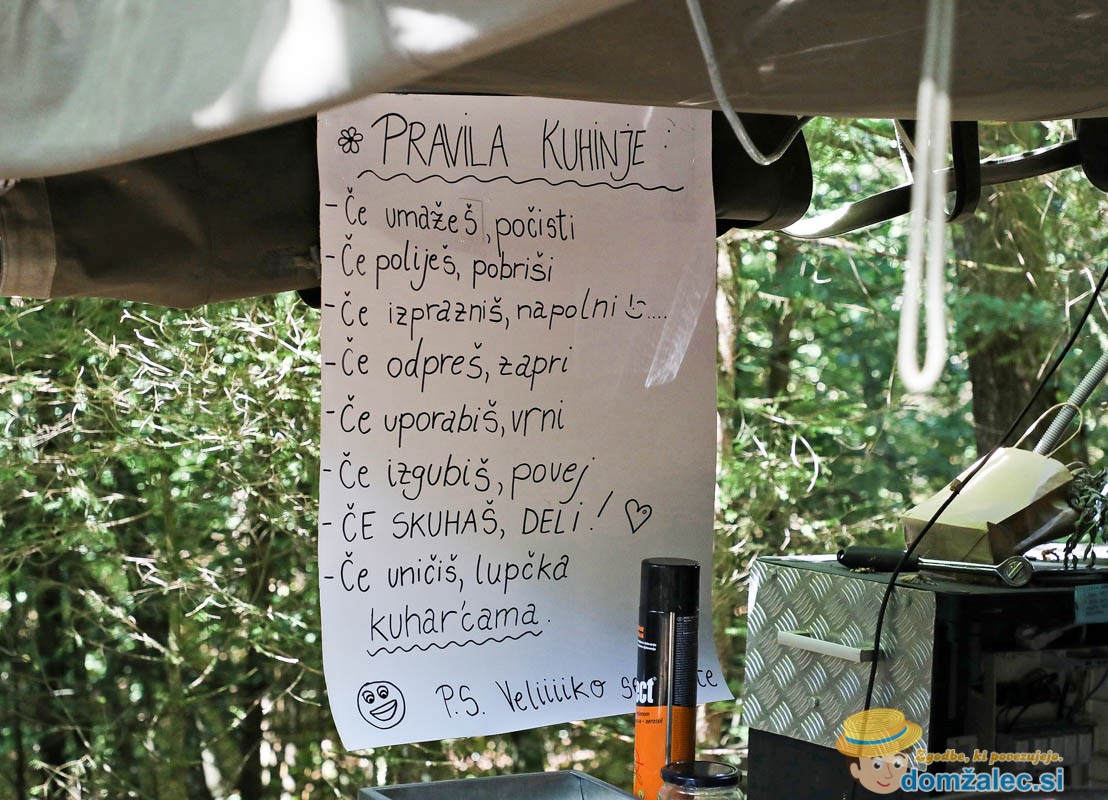 PRAVILA KUHINJE :
- Če umažeš, počisti
- Če poliješ, pobriši
- Če izprazniš, napolni ....
- Če odpreš, zapri
- Če uporabiš, vrni
- Če izgubiš, povej
- ČE SKUHAŠ, DELI!
- Če uničiš, lupčka
kuhar'cama.
P.S. Veliiiiko
Zgodbe, ki povezujejo.
domžalec.si